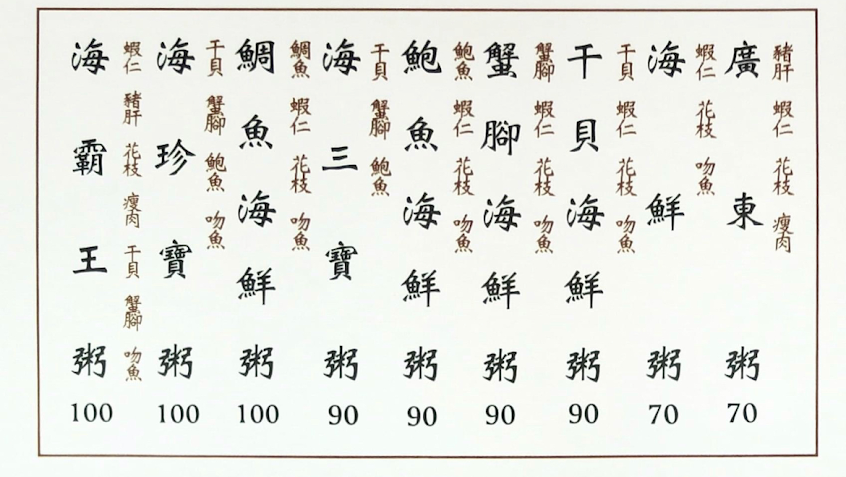 廣東粥
豬肝 蝦仁 花枝 瘦肉
70
海鮮粥
蝦仁 花枝 吻魚
70
干貝海鮮粥
干貝 蝦仁 花枝 吻魚
90
蟹腳海鮮粥
蟹腳 蝦仁 花枝 吻魚
90
鮑魚海鮮粥
鮑魚 蝦仁 花枝 吻魚
90
海三寶粥
干貝 蟹腳 鮑魚
90
鯛魚海鮮粥
鯛魚 蝦仁 花枝 吻魚
100
海珍寶粥
干貝 蟹腳 鮑魚 吻魚
100
海霸王粥
蝦仁 豬肝 花枝 瘦肉 干貝 蟹腳 吻魚
100